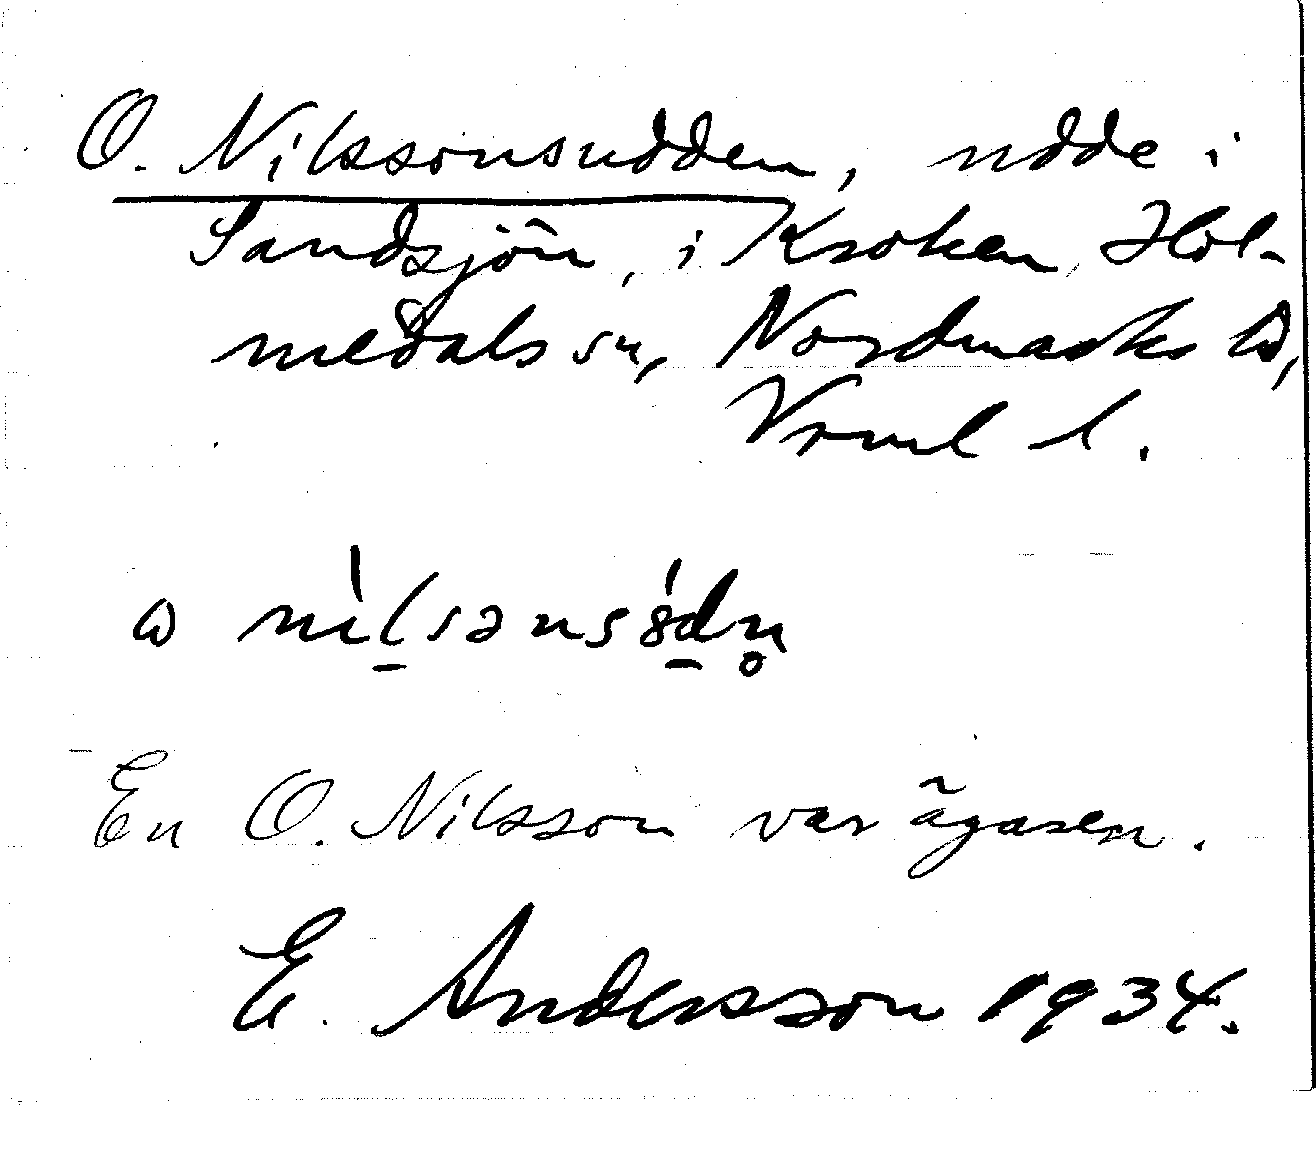 O. Nilssonsudden, udde i
Sandsjön, i Kroken, Hol-
medals sn, Nordmarks hd,
Vrml l.
En O. Nilsson var ägaren.
E. Andersson 1934.